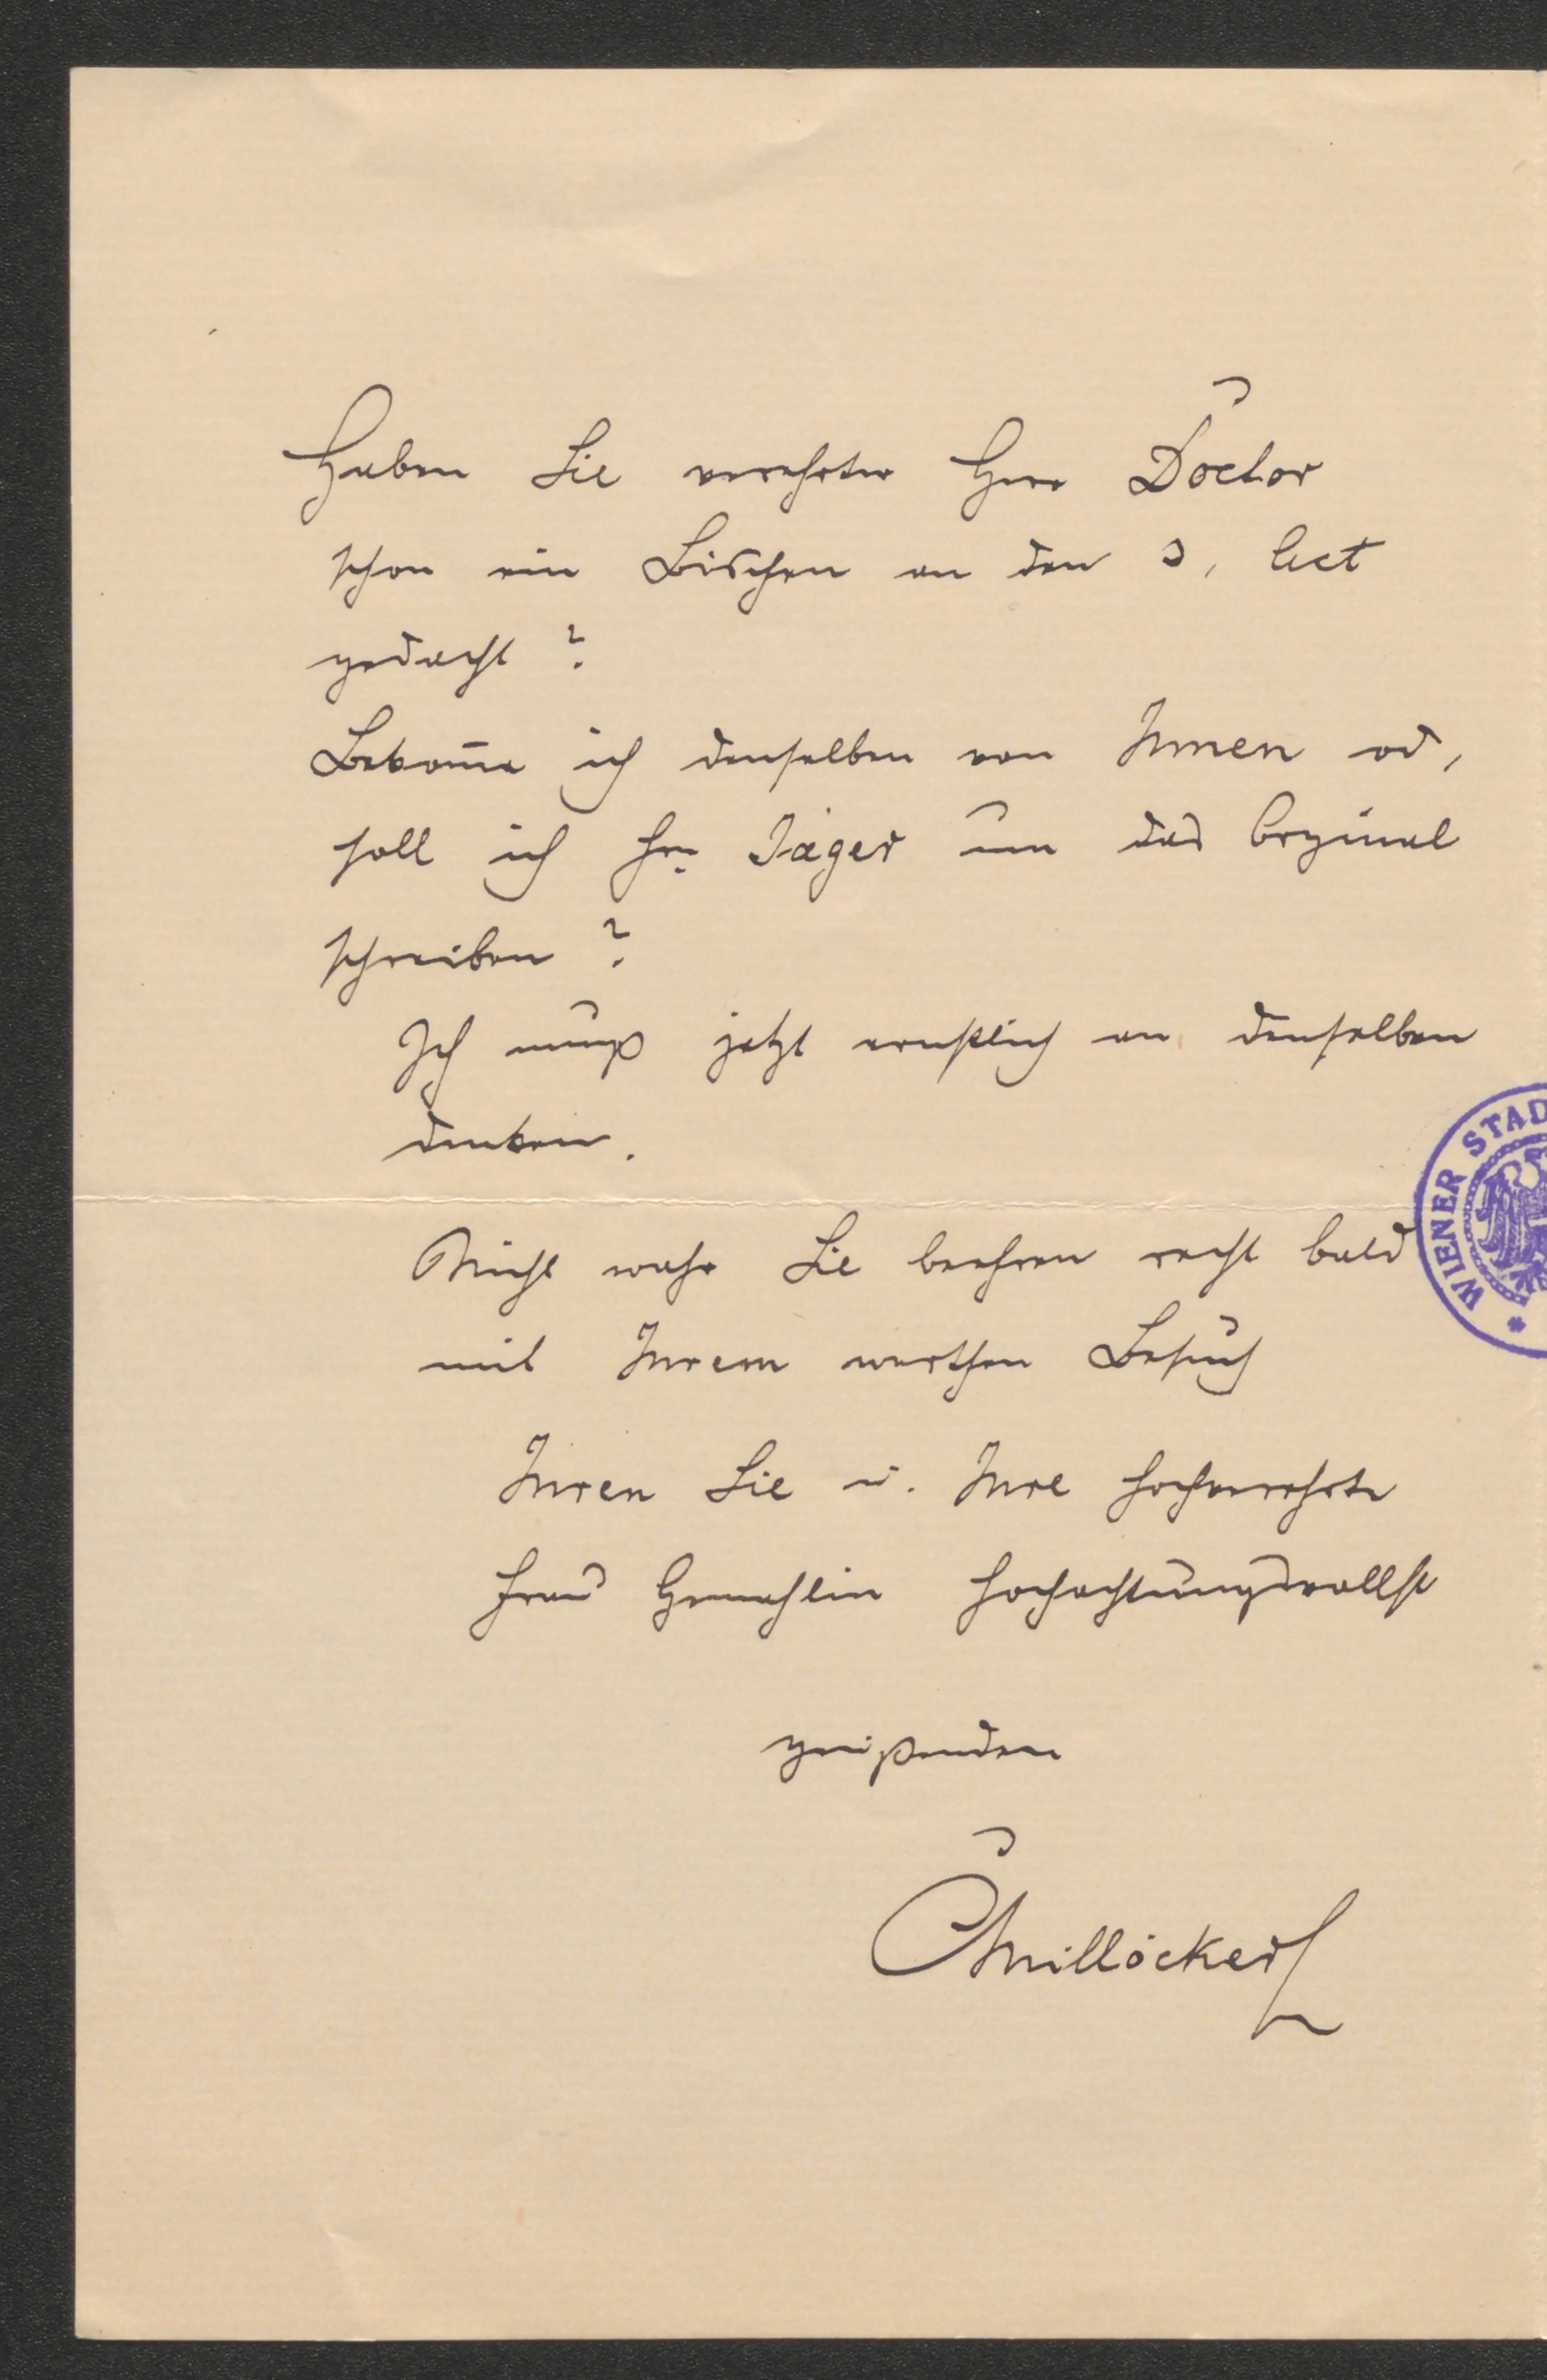 Haben Sie verehrter Herr Doctor
schon ein Bischen an den 3. Act
gedacht?
Bekom̄e ich denselben von Ihnen od.
soll ich Hrn Jäger um das Orginal
schreiben?
Ich muß jetzt ernstlich an denselben
denken.
Nicht wahr Sie beehren recht bald
mit Ihrem werthen Besuch
Ihren Sie u. Ihre hochverehrte
Frau Gemahlin hochachtungsvollst
grüßenden
CMillöcker
WIENER STAD